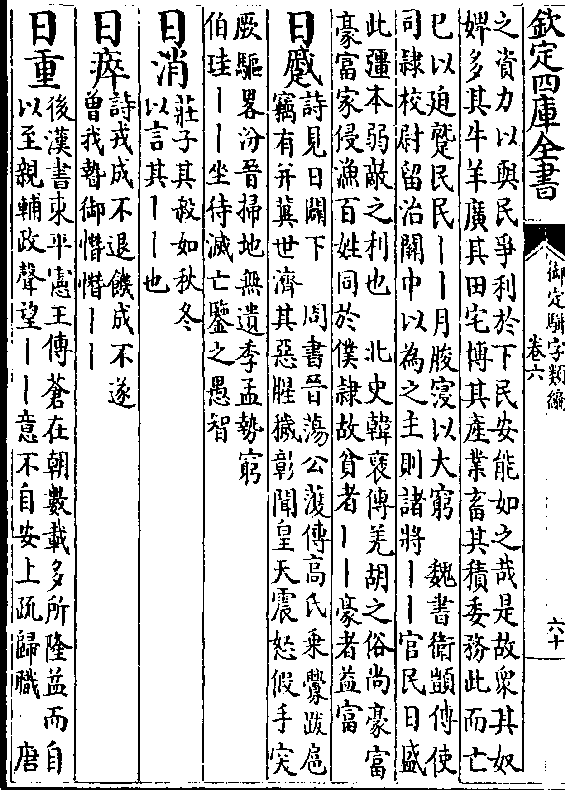 欽定四庫全書
御定駢字類編
卷六
六十
之資力以與民爭利於下民安能如之哉是故衆其奴
婢多其牛羊廣其田宅博其產業畜其積委務此而亡
已以迫蹵民民丨丨月朘寖以大窮　魏書衛顗傳使
司隷校尉留治關中以為之主則諸將丨丨官民日盛
此彊本弱敵之利也　北史韓裒傳羌胡之俗尚豪富
豪富家侵漁百姓同於僕隷故貧者丨丨豪者益富
日蹙
詩見日闢下　周書晉蕩公護傳高氏乗釁跋扈
竊有并冀世濟其惡腥穢彰聞皇天震怒假手突
厥驅畧汾晉掃地無遺季孟勢窮
伯珪丨丨坐待滅亡鑒之愚智
日消
莊子其殺如秋冬
以言其丨丨也
日瘁
詩戎成不退饑成不遂
曾我暬御憯憯丨丨
日重
後漢書東平憲王傳蒼在朝數載多所隆益而自
以至親輔政聲望丨丨意不自安上疏歸職　唐